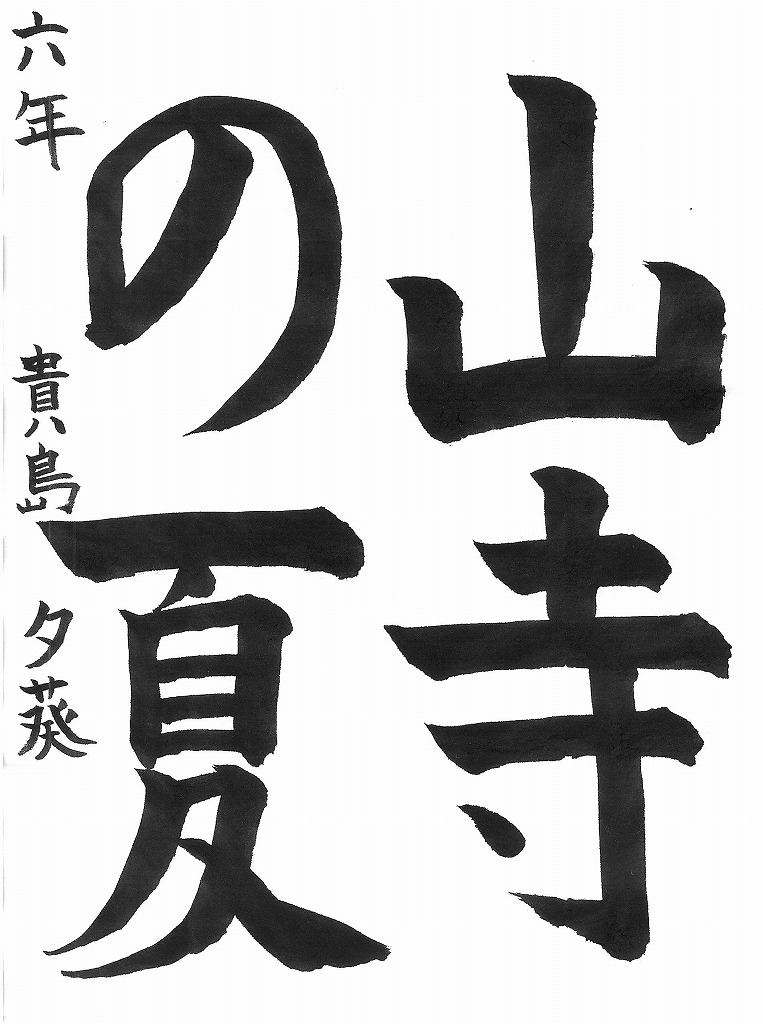 山寺
の夏
六年 貴島 夕葵